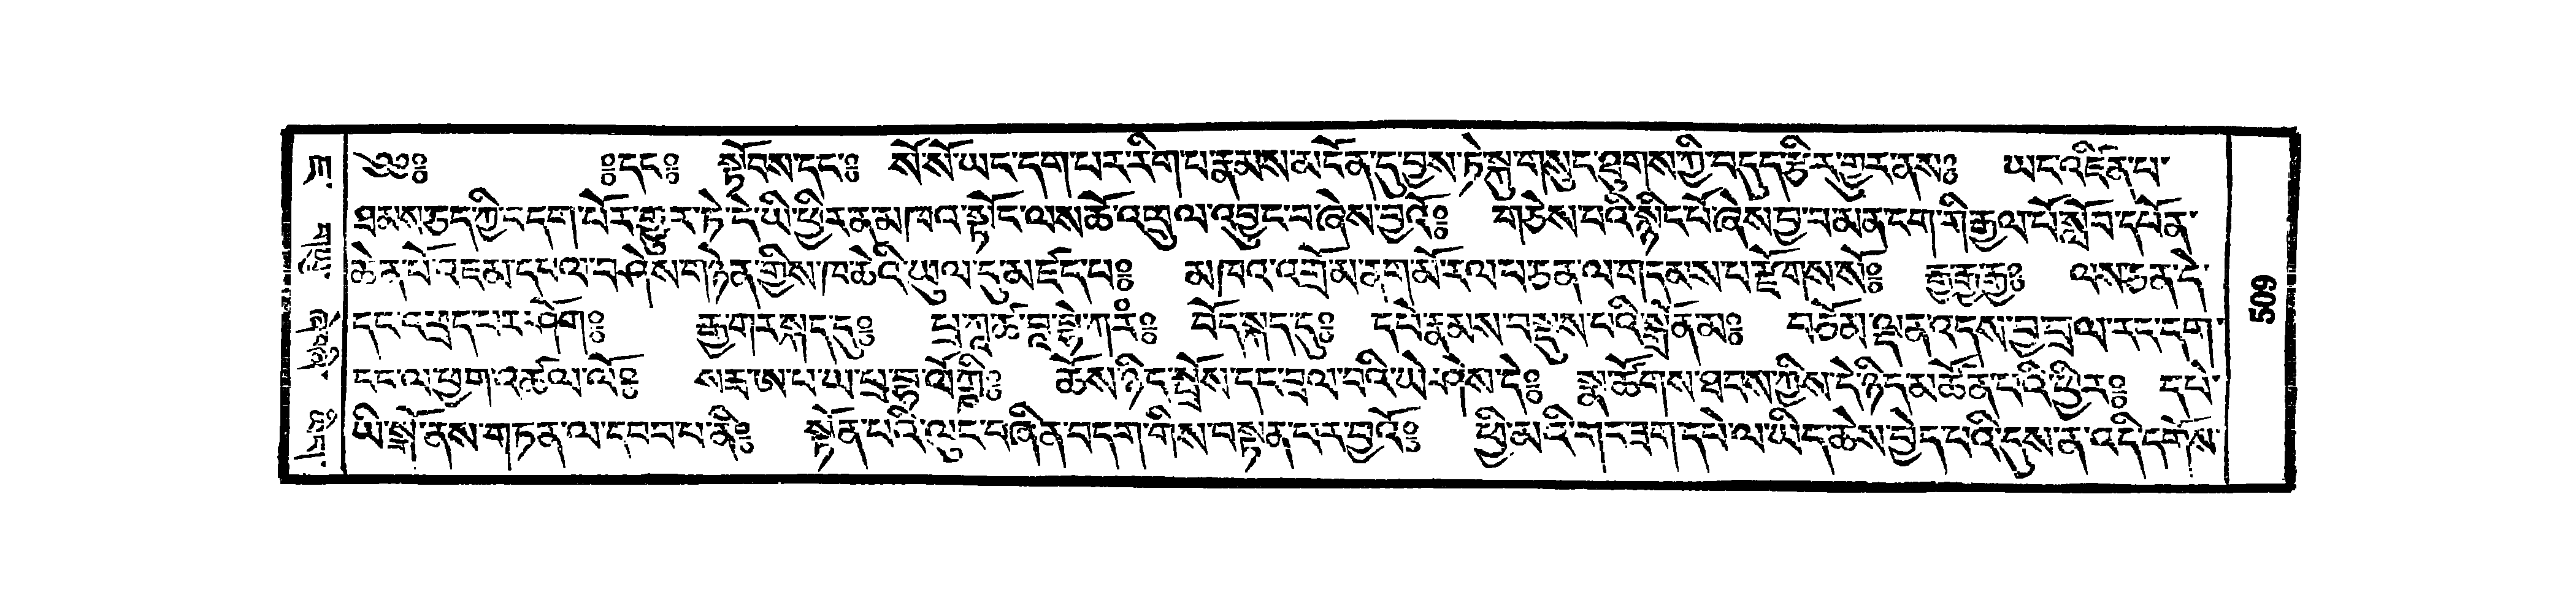 ༄༅༔ ༔དང༔ སྟོབས་དང་༔ སོ་སོ་ཡང་དག་པར་རིག་པ་རྣམས་མངོན་དུ་བྱས་ཏེ་སྐུ་གསུང་ཐུགས་ཀྱི་བདུད་རྩིར་གྱུར་ནས༔ ཡང་འཛིན་པ་
ཐམས་ཅད་ཀྱི་ང་དག་པོར་གྱུར་ཏེ་དེ་ཡི་ཕྱིར་ནམ་མཁའ་སྟོང་ལས་ཆོ་འཕྲུལ་འབྱུང་བ་ཞེས་བྱའོ༔ གཅེས་པའི་སྙིང་པོ་ཞེས་བྱ་བ་མན་ངག་གི་རྒྱལ་པོ་སློབ་དཔོན་
ཆེན་པོ་འཇམ་དཔལ་བཤེས་གཉེན་གྱིས་ཁ་ཆེའི་ཡུལ་དུ་མཛད་པ༔ མཁའ་འགྲོ་མ་ནག་མོ་རལ་པ་ཅན་ལ་གདམས་པ་རྫོགས་སོ༔ རྒྱ་རྒྱ་རྒྱ༔ ལས་ཅན་དེ་
དང་འཕྲད་པར་ཤོག༔ རྒྱ་གར་སྐད་དུ༔ བོད་སྐད་དུ༔ དཔེ་རྣམས་བསྡུས་པའི་སྒྲོན་མ༔ བཅོམ་ལྡན་འདས་བྱ་བྲལ་རང་དག་
དང་ལ་ཕྱག་འཚལ་ལོ༔ ཆོས་ཉིད་སྤྲོས་དང་བྲལ་བའི་ཡེ་ཤེས་དེ༔ སྣ་ཚོགས་ཐབས་ཀྱིས་དེ་ཉིད་མཚོན་པའི་ཕྱིར༔ དཔེ་
ཡི་སྒོ་ནས་གཏན་ལ་དབབ་པ་ནི༔ སྟོན་པའི་ལུང་བཞིན་བདག་གིས་བསྟན་པར་བྱའོ༔ ཕྱི་མ་རི་གང་ཟག་དཔེ་ལ་ཡིད་ཆེས་བྱེད་པའི་དུས་ན་འདི་དགོས་
509